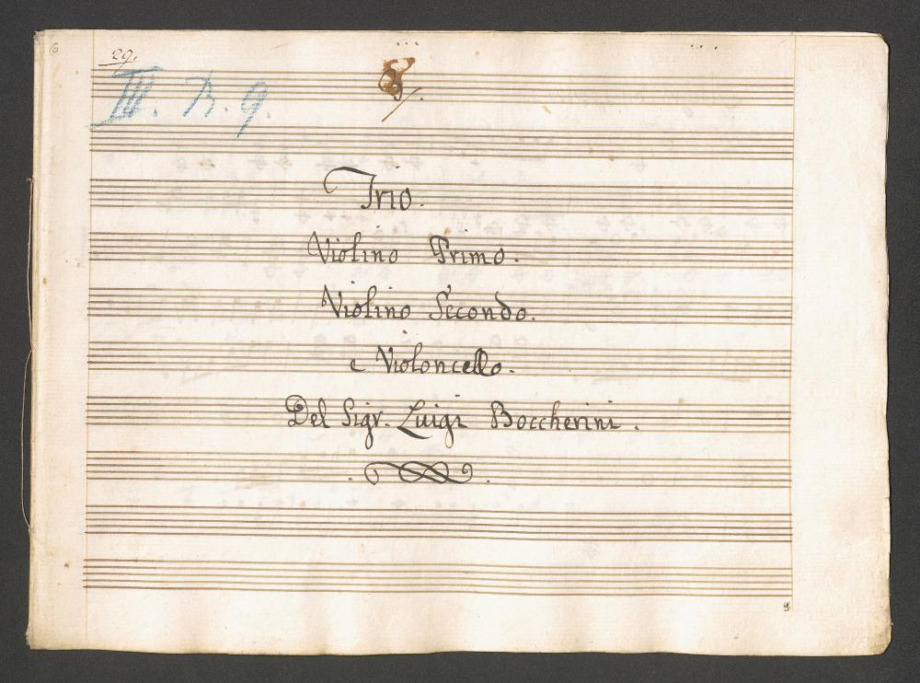 29.
III. B. 9.
Trio.
Violino Primo.
Violino Secondo.
e Violoncello.
Del Sigr. Luigi Boccherini.
9